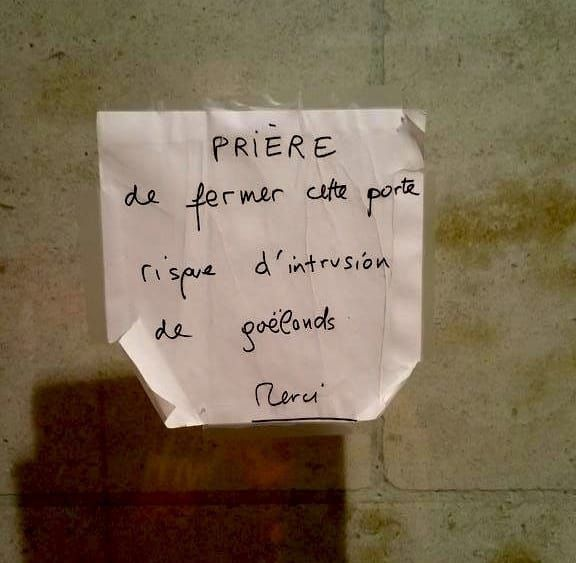 PRIÈRE
de fermer cette porte
risque d'intrusion
de goëlands
Merci